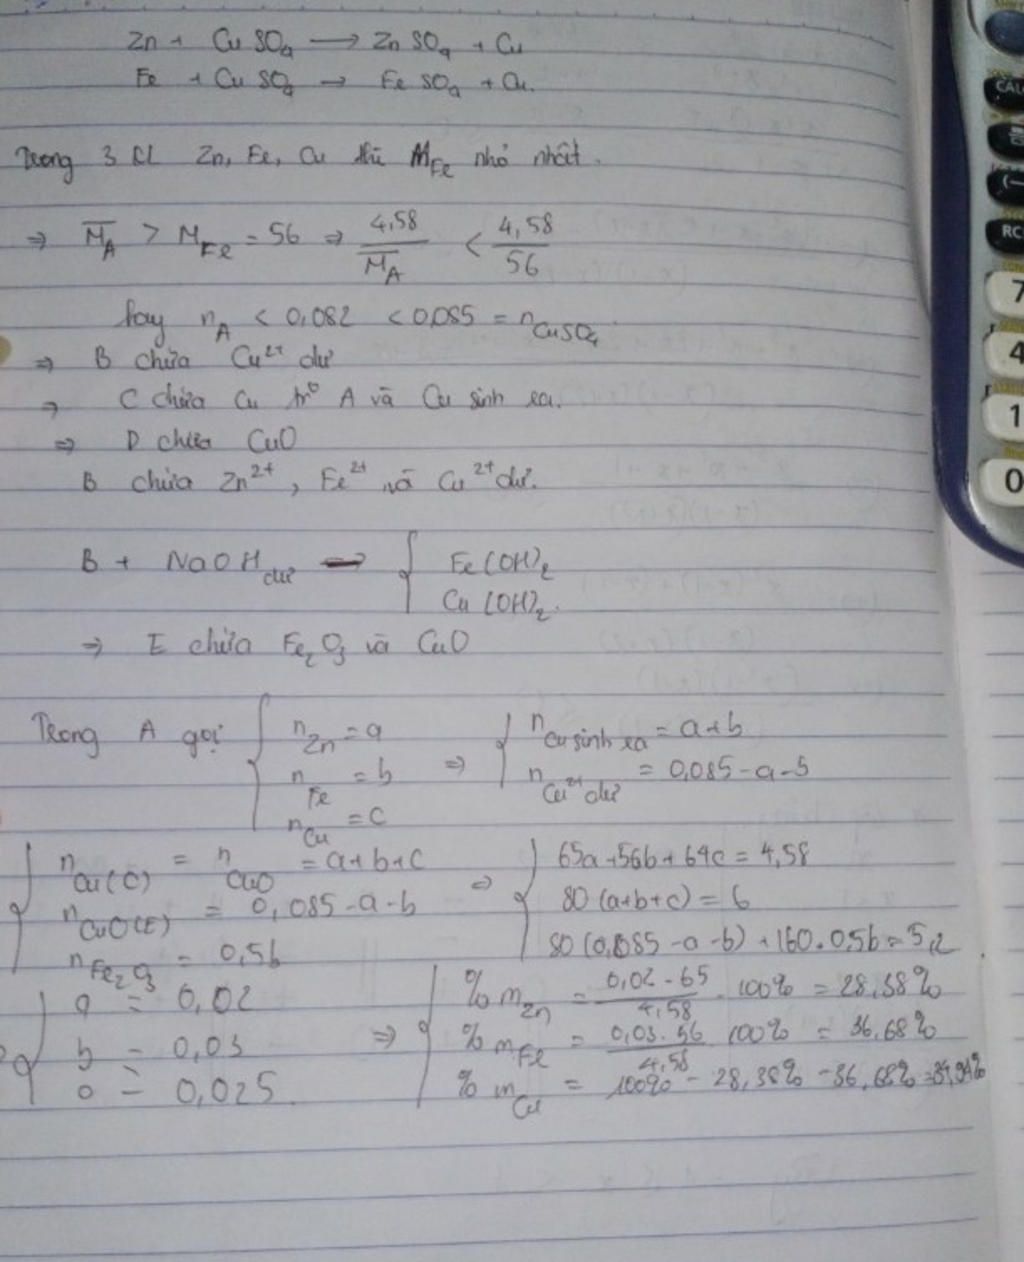 Zn + CuSO₄ → ZnSO₄ + Cu
Fe + CuSO₄ → FeSO₄ + Cu.
Trong 3 KL Zn, Fe, Cu thì M_Fe nhỏ nhất.
⇒ M̅_A > M_Fe = 56 ⇒ 4,58/M̅_A < 4,58/56
hay n_A < 0,082 < 0,085 = n_CuSO₄
⇒ B chứa Cu²⁺ dư
⇒ C chứa Cu từ A và Cu sinh ra.
⇒ D chứa CuO
B chứa Zn²⁺, Fe²⁺ và Cu²⁺ dư.
B + NaOH dư → { Fe(OH)₂
Cu(OH)₂.
⇒ E chứa Fe₂O₃ và CuO
Trong A gọi { n_Zn = a ⇒ { n_Cu sinh ra = a+b
n_Fe = b n_Cu²⁺ dư = 0,085-a-b
n_Cu = c
{ n_Cu(C) = n_CuO = a+b+c ⇒ { 65a+56b+64c = 4,58
n_CuO(E) = 0,085-a-b 80(a+b+c) = 6
n_Fe₂O₃ = 0,5b 80(0,085-a-b)+160.0,5b = 5,2
{ a = 0,02 ⇒ { %m_Zn = 0,02.65/4,58 . 100% = 28,38%
b = 0,03 %m_Fe = 0,03.56/4,58 100% = 36,68%
c = 0,025. %m_Cu = 100% - 28,38% - 36,68% = 34,94%
CAL
(−
RC
7
4
1
0